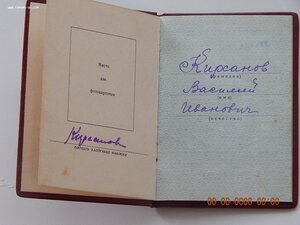 Место
для
фотокарточки
Кирсанов
(подпись владельца книжки)
Кирсанов
(фамилия)
Василий
(имя)
Иванович
(отчество)
00 00 0000 00:00